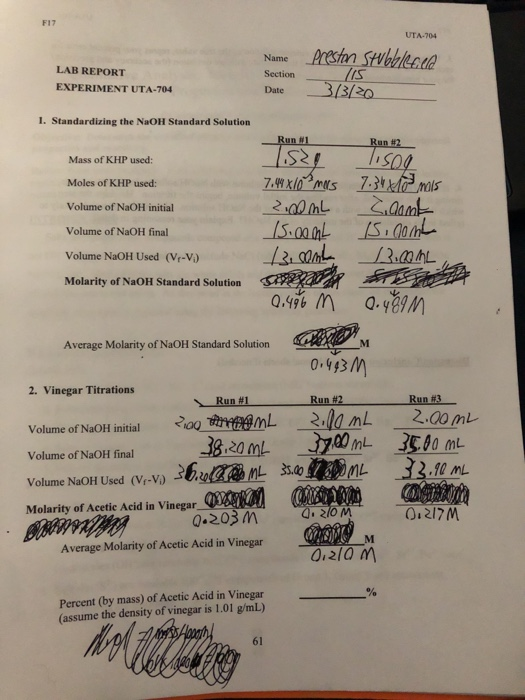 F17
UTA-704
Name Preston Stubblefield
LAB REPORT Section 115
EXPERIMENT UTA-704 Date 3/3/20
1. Standardizing the NaOH Standard Solution
Run #1 Run #2
Mass of KHP used: 1.52g 1.50g
Moles of KHP used: 7.44 x10⁻³ mols 7.34 x10⁻³ mols
Volume of NaOH initial 2.00 mL 2.00mL
Volume of NaOH final 15.00 mL 15.00mL
Volume NaOH Used (Vf-Vi) 13.00mL 13.00mL
Molarity of NaOH Standard Solution
0.496 M 0.489M
Average Molarity of NaOH Standard Solution M
0.493M
2. Vinegar Titrations
Run #1 Run #2 Run #3
Volume of NaOH initial 2.00 mL 2.00 mL 2.00 mL
Volume of NaOH final 38.20 mL 37.00 mL 35.90 mL
Volume NaOH Used (Vf-Vi) 36.20 mL 35.00 mL 33.90 mL
Molarity of Acetic Acid in Vinegar
0.203M 0.210M 0.217M
Average Molarity of Acetic Acid in Vinegar M
0.210 M
Percent (by mass) of Acetic Acid in Vinegar %
(assume the density of vinegar is 1.01 g/mL)
61